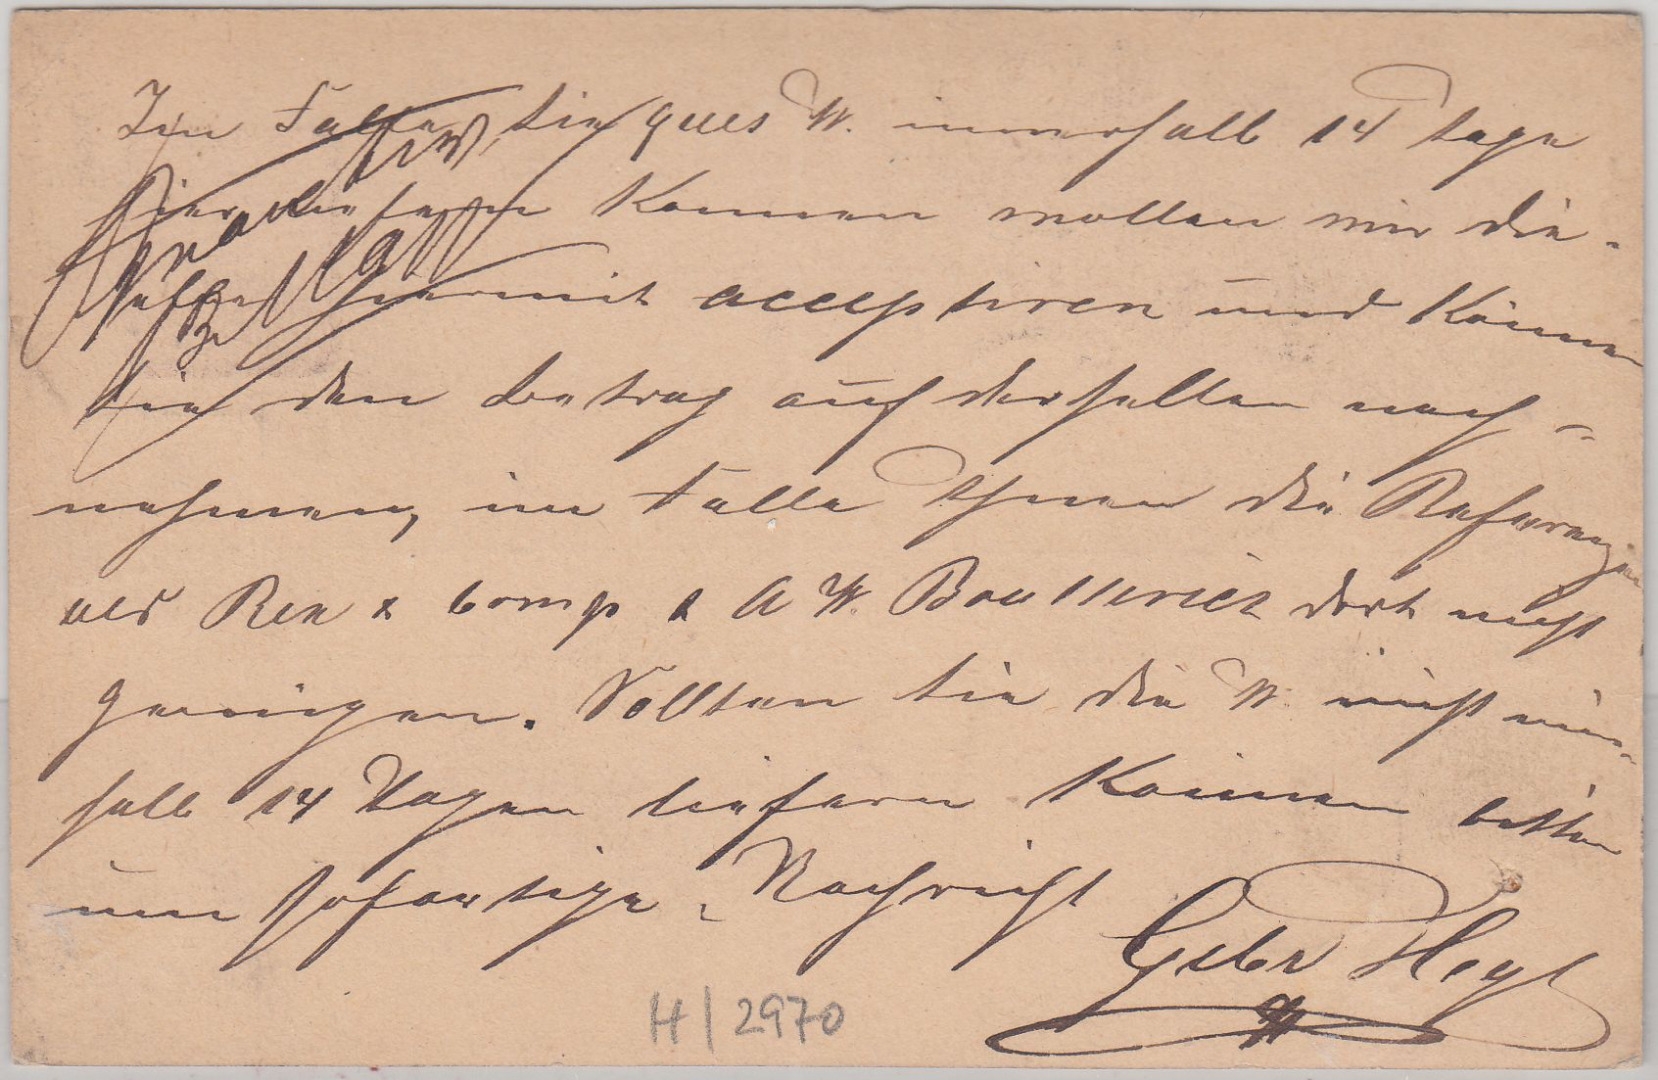 Im Falle, Sie ques W. innerhalb 14 Tage
hier liefern können wollen wir die-
selbe hiermit acceptiren und können
Sie den Betrag auf derselben nach-
nehmen, im Falle Ihnen die Referenzen
als Ren & Comp & A W. dort nicht
genügen. Sollten Sie die W. nicht inner-
halb 14 Tagen liefern können bitten
um sofortige Nachricht
Gebr Heyl
H/2970